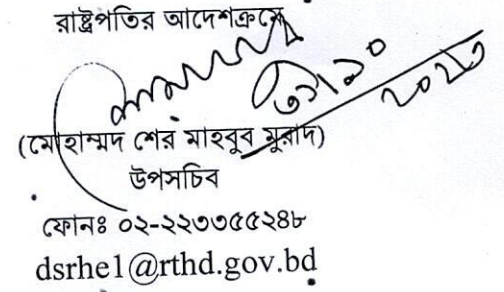 রাষ্ট্রপতির আদেশক্রমে
৩১।১০
২০২৩
(মোহাম্মদ শের মাহবুব মুরাদ)
উপসচিব
ফোনঃ ০২-২২৩৩৫৫২৪৮
dsrhe1@rthd.gov.bd